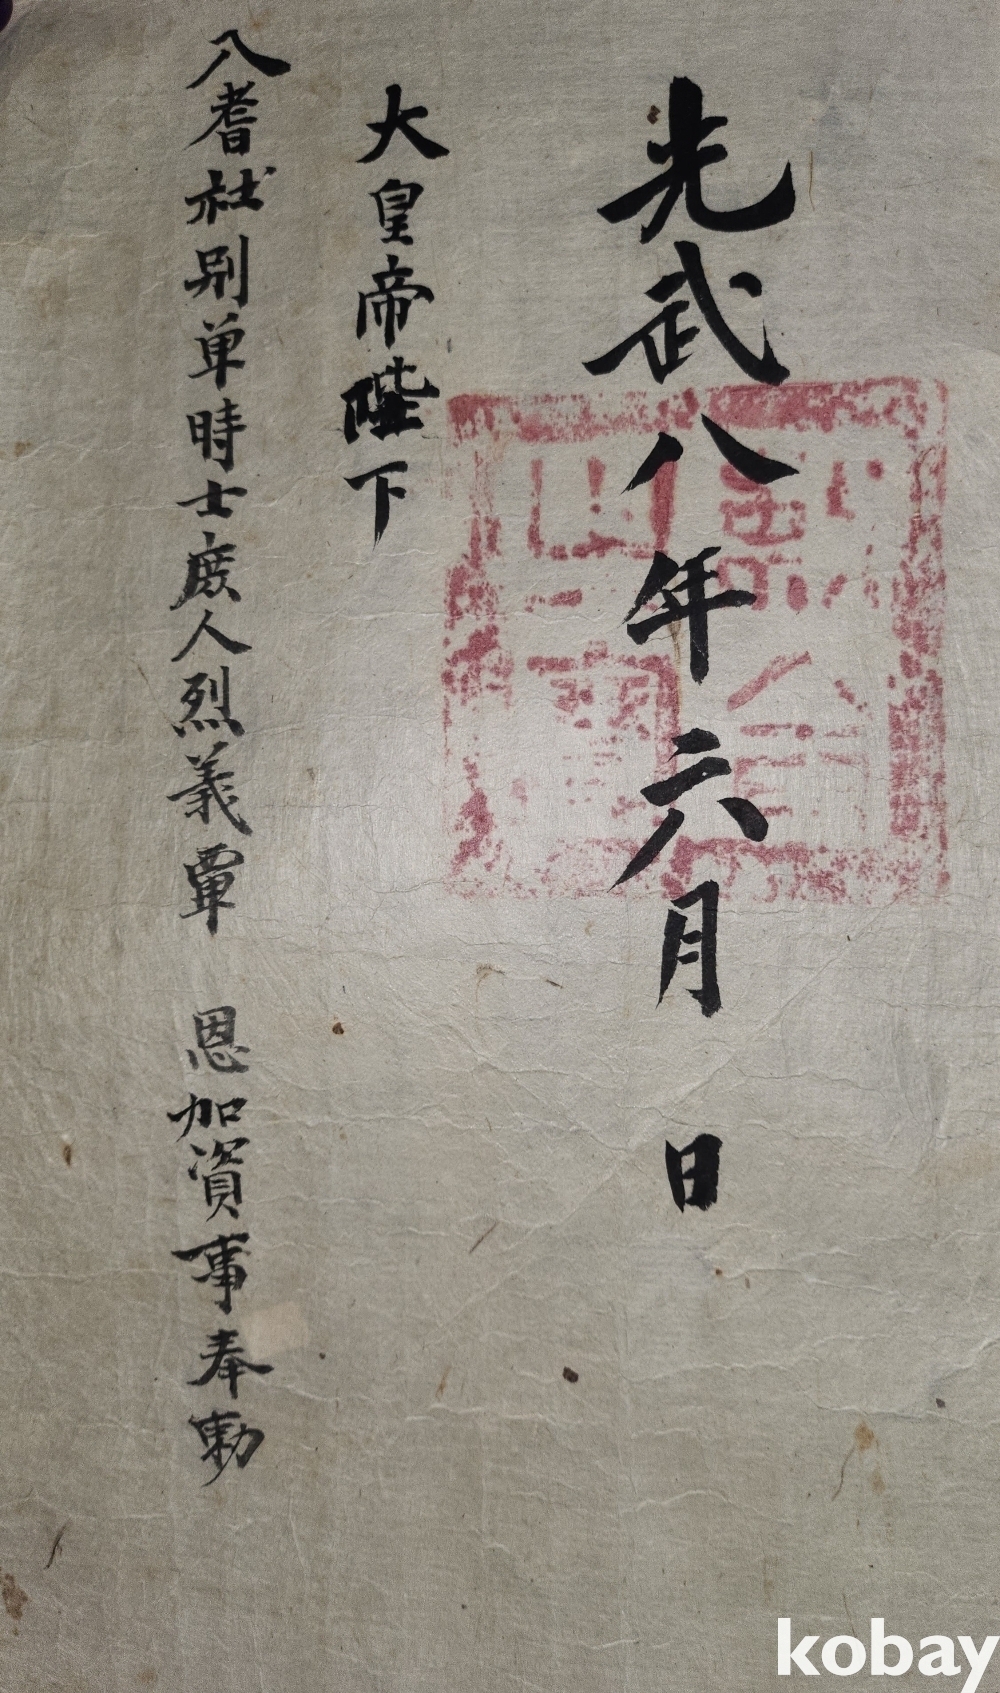 光武八年六月 日
大皇帝陛下
入耆社別单時士庶人烈義覃 恩加資事奉勅
kobay